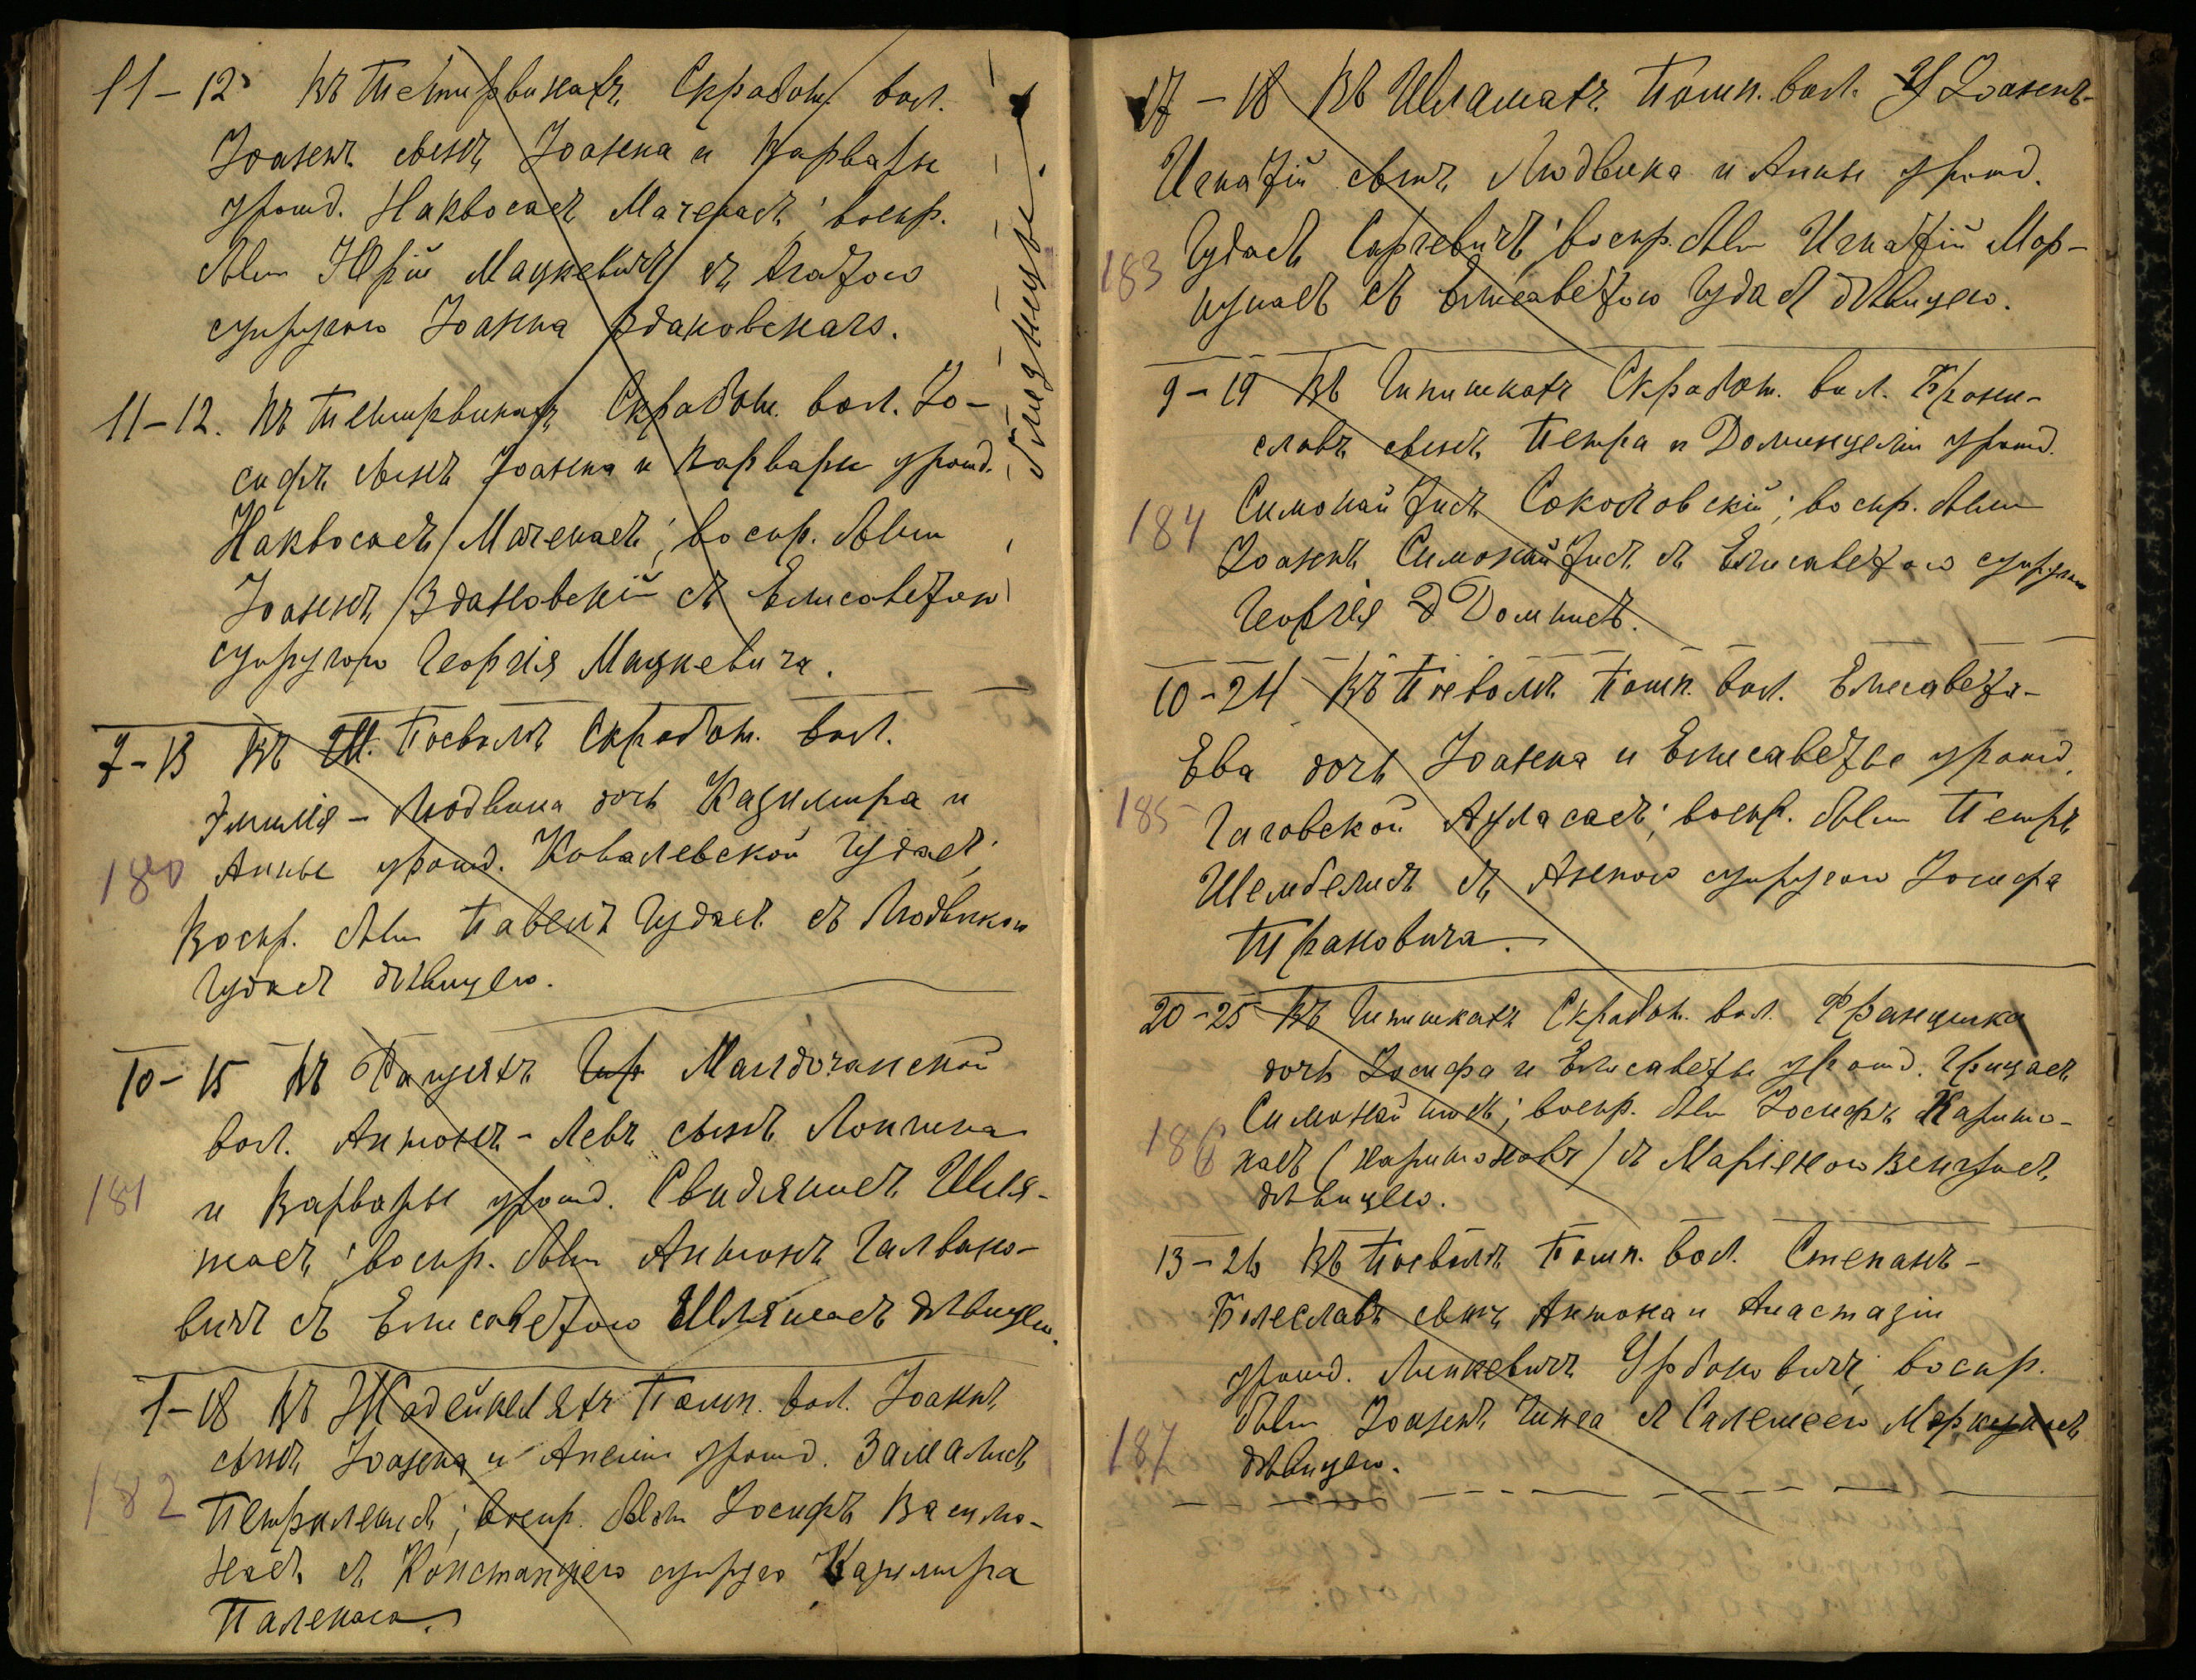 11–12 Въ Тетирвинахъ Скработ. вол.
Іоаннъ сынъ Іоанна и Варвары
урожд. Наквосасъ Мачекасъ; воспр.
были Юрій Мацкевичъ съ Агатою
супругою Іоанна Здановскаго.
близнецы.
11–12. Въ Тетирвинахъ Скработ. вол. Іо-
сифъ сынъ Іоанна и Варвары урожд.
Наквосасъ Мачекасъ; воспр. были
Іоаннъ Здановскій съ Елисаветою
супругою Георгія Мацкевича.
7–13 Въ Посволѣ Скработ. вол.
Эмилія–Людвика дочь Казимира и
180 Анны урожд. Ковалевской Гудасъ;
Воспр. были Павелъ Гудасъ съ Людвикою
Гудасъ дѣвицею.
10–15 Въ Гир Малдочанской
вол. Антонъ–Левъ сынъ Лонгина
181 и Варвары урожд. Свидлянисъ Шля-
жасъ; воспр. были Антонъ Галвано-
вичъ съ Елисаветою Шляжасъ дѣвицею.
1–18 Въ Жадейкеляхъ Помп. вол. Іоаннъ
сынъ Іоанна и Анеліи урожд. Замалисъ
182 Петриленисъ; воспр. были Іосифъ Василю-
насъ съ Констанціею супругою Казимира
Паленаса.
17–18 Въ Шламахъ Помп. вол. Іоаннъ-
Игнатій сынъ Людвика и Анны урожд.
183 Гудасъ Саргевичъ; воспр. были Игнатій Мор-
кунасъ съ Елисаветою Гудасъ дѣвицею.
9–19 Въ Гипишкахъ Скработ. вол. Брони-
славъ сынъ Петра и Доминицели урожд.
184 Симонайтисъ Соколовскій; воспр. были
Іоаннъ Симонайтисъ съ Елисаветою супругою
Георгія Домкисъ.
10–24 Въ Посволѣ Помп. вол. Елисавета-
Ева дочь Іоанна и Елисаветы урожд.
185 Гаговской Ауласасъ; воспр. были Петръ
Шембелисъ съ Анною супругою Іосифа
Трановича.
20–25 Въ Гипишкахъ Скработ. вол. Францишка
дочь Іосифа и Елисаветы урожд. Грицасъ
186 Симонайтисъ; воспр. были Іосифъ Харито-
насъ (Харитоновъ) съ Маріяною Венгрисъ
дѣвицею.
13–26 Въ Посволѣ Помп. вол. Степанъ-
Болеславъ сынъ Антона и Анастазіи
урожд. Линкевичъ Урбановичъ; воспр.
187 были Іоаннъ Гинга съ Салемеею Моркунасъ
дѣвицею.